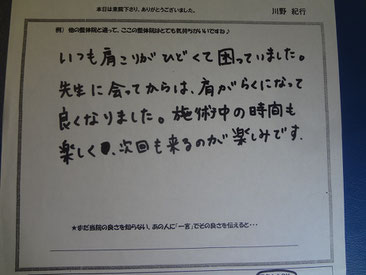 本日は来院下さり、ありがとうございました。
川野 紀行
例）他の整体院と違って、ここの整体院はとても気持ちがいいですね♪
いつも肩こりがひどくて困っていました。
先生に会ってからは、肩がらくになって
良くなりました。施術中の時間も
楽しく、次回も来るのが楽しみです。
★まだ当院の良さを知らない、あの人に「一言」でその良さを伝えると・・・